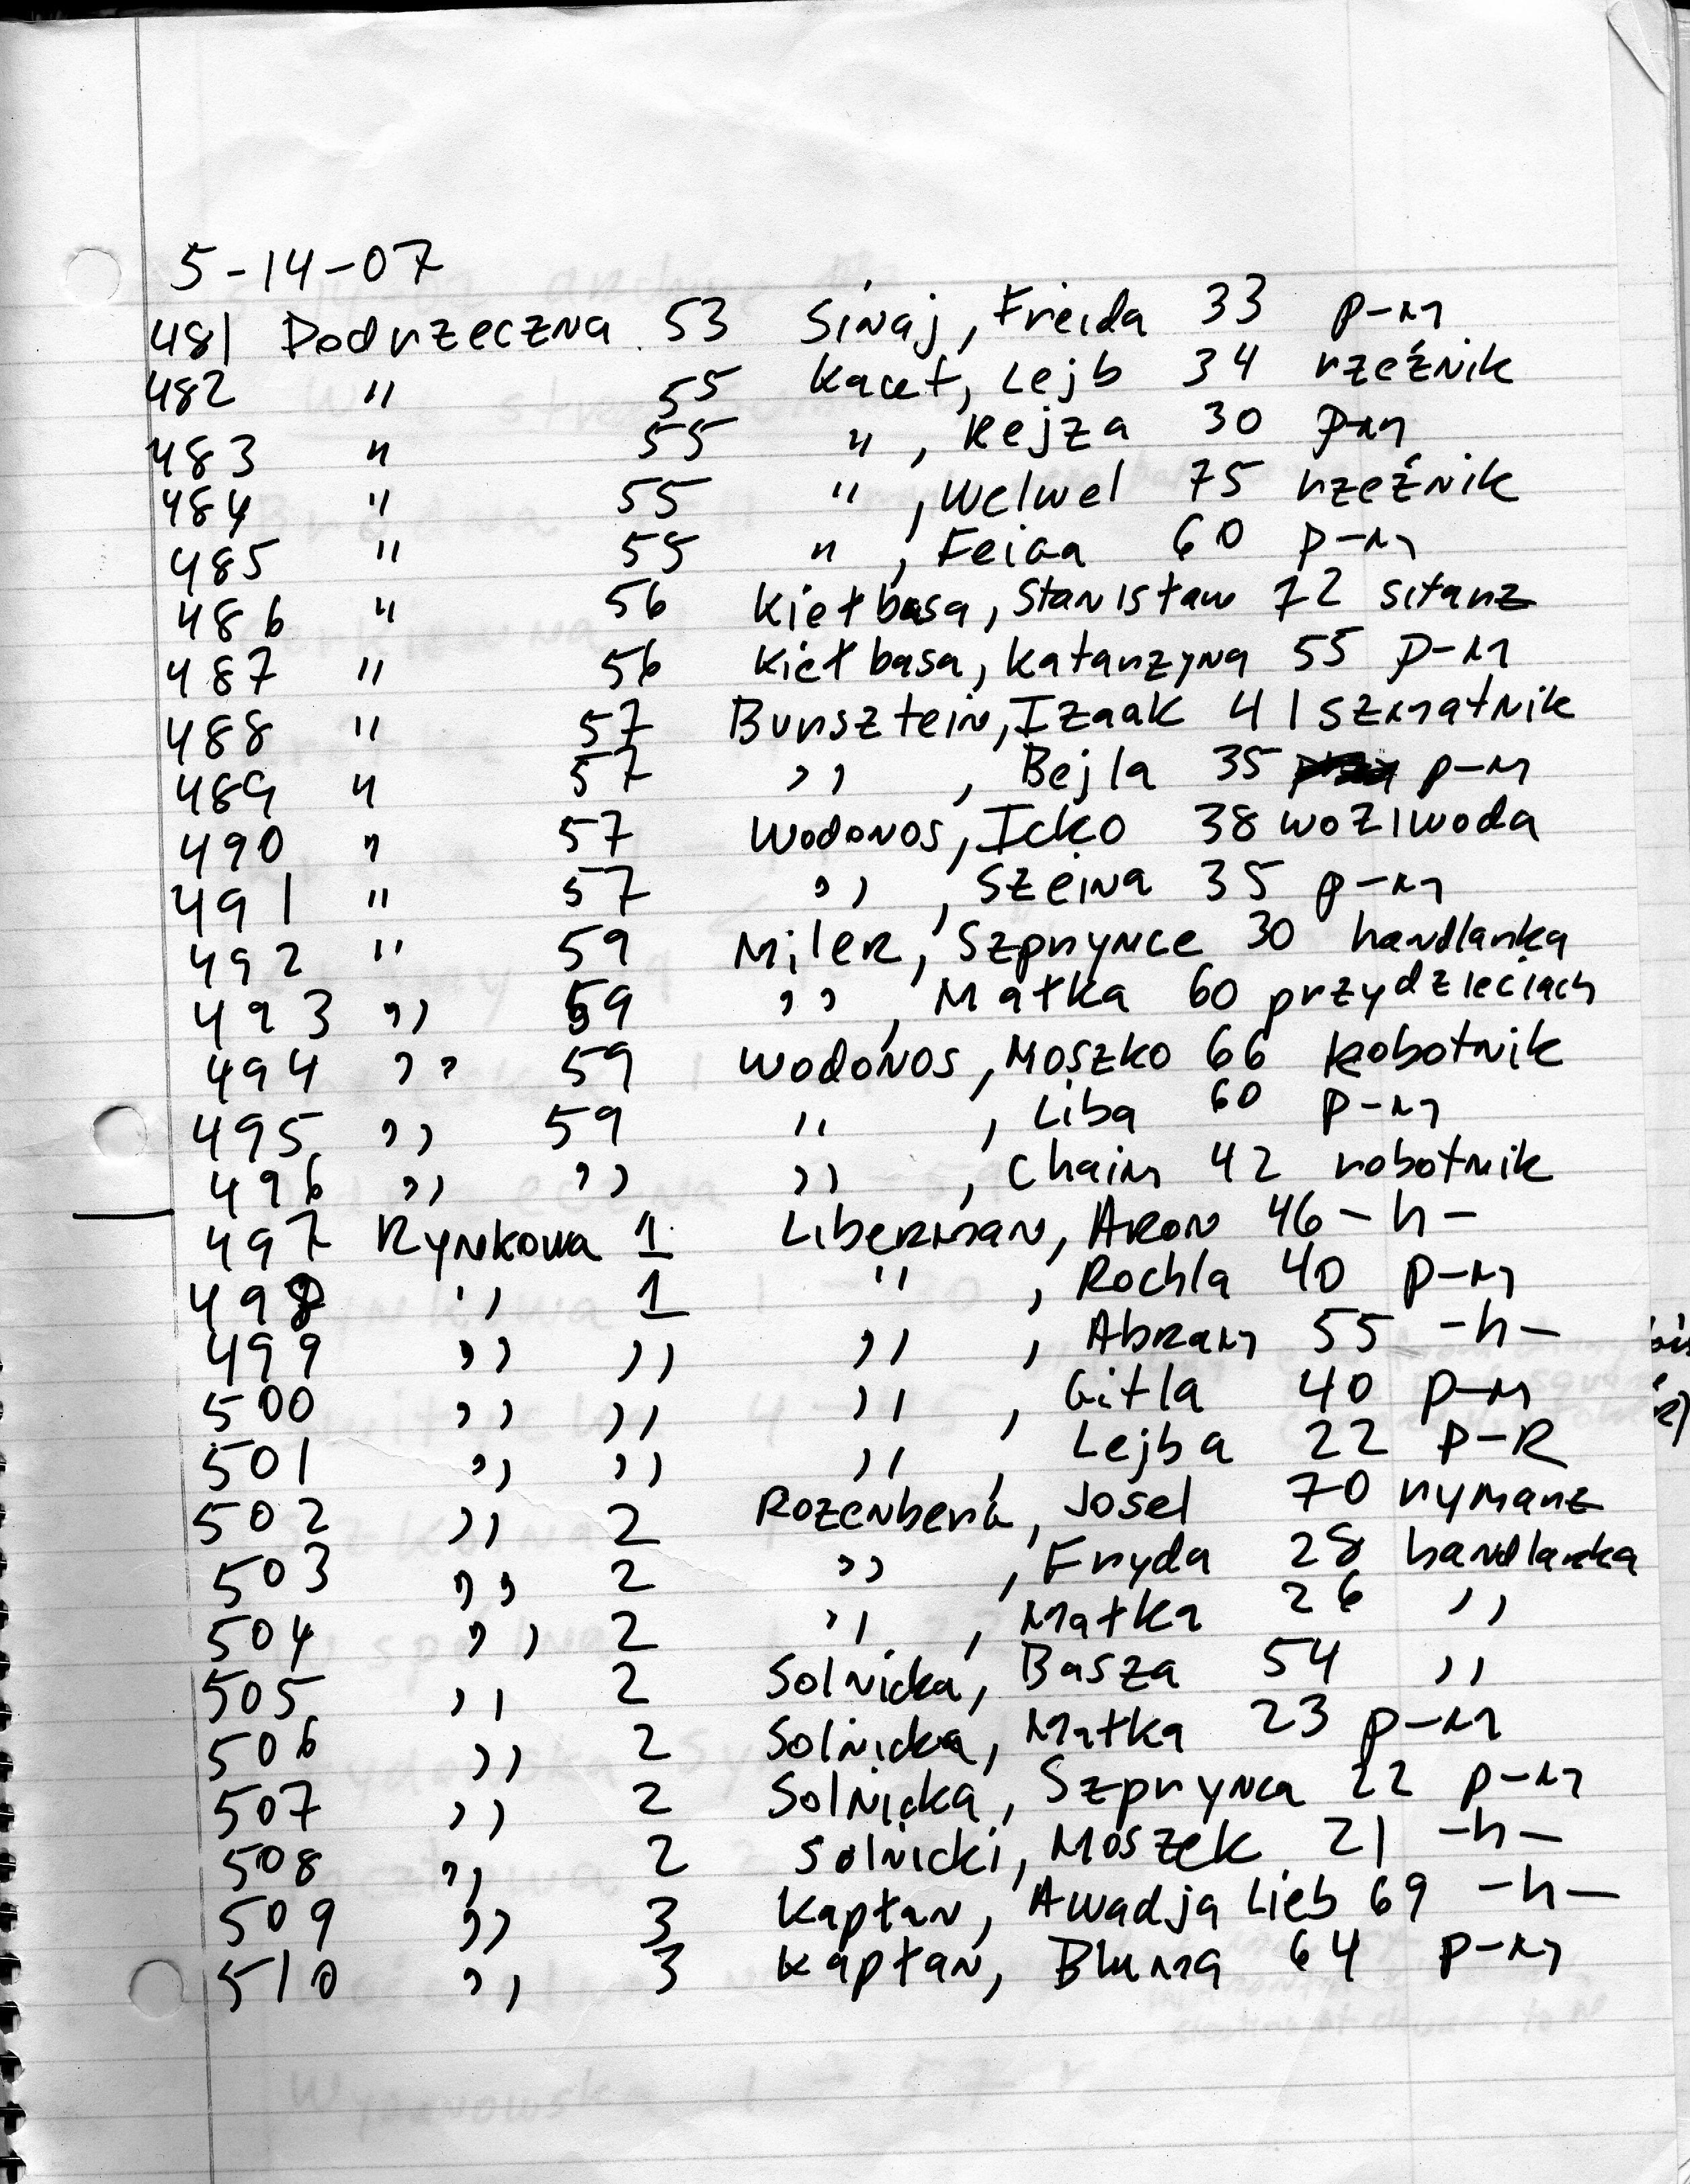 5-14-07
481 Podrzeczna 53 Sinaj, Freida 33 p-m
482 " 55 Kacet, Lejb 34 rzeźnik
483 " 55 " , Rejza 30 p-m
484 " 55 " , Welwel 75 rzeźnik
485 " 55 " , Feiga 60 p-m
486 " 56 Kiełbasa, Stanisław 72 sitarz
487 " 56 Kiełbasa, Katarzyna 55 p-m
488 " 57 Bursztein, Izaak 41 szmatnik
489 " 57 " , Bejla 35 p-m
490 " 57 Wodonos, Icko 38 woziwoda
491 " 57 " , Szejna 35 p-m
492 " 59 Miler, Szprynce 30 handlarka
493 " 59 " , Małka 60 przy dzieciach
494 " 59 Wodonos, Moszko 66 Robotnik
495 " 59 " , Liba 60 p-m
496 " " " , Chaim 42 robotnik
497 Rynkowa 1 Liberman, Aron 46 -h-
498 " 1 " , Rochla 40 p-m
499 " " " , Abram 55 -h-
500 " " " , Gitla 40 p-m
501 " " " , Lejba 22 p-R
502 " 2 Rozenberg, Josel 70 rymarz
503 " 2 " , Fryda 28 handlarka
504 " 2 " , Małka 26 "
505 " 2 Solnicka, Basza 54 "
506 " 2 Solnicka, Małka 23 p-m
507 " 2 Solnicka, Szprynca 22 p-m
508 " 2 Solnicki, Moszek 21 -h-
509 " 3 Kapłan, Awadja Lieb 69 -h-
510 " 3 Kapłan, Bluma 64 p-m